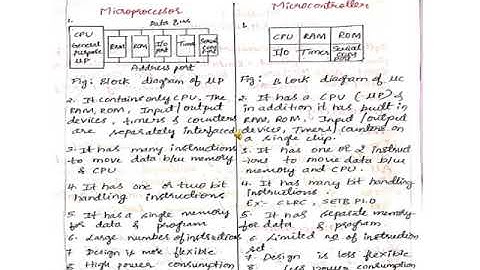 Microprocessor
1.
Data Bus
CPU
General
purpose
μP
RAM
ROM
I/O
port
Timer
Serial
Port
Address port
Fig: Block diagram of μP
2. It contains only CPU. The
RAM, ROM, Input/output
devices, timers & counters
are separately interfaced
3. It has many instructions
to move data b/w memory
& CPU
4. It has one or two bit
handling instructions
5. It has a single memory
for data & program
6. Large number of instructions
7. Design is more flexible
8. High power consumption
Microcontroller
1.
CPU RAM ROM
I/O Timer Serial
port
Fig: Block diagram of μc
2. It has a CPU (μP) &
in addition it has built in
RAM, ROM, Input/output
devices, Timers/counters on
a single chip.
3. It has one or 2 instruct
-ions to move data b/w
memory and CPU.
4. It has many bit handling
instructions.
Ex:- CLRC, SETB P1.0
5. It has separate memory
for data & program
6. Limited no of instruction
set
7. Design is less flexible
8. Less power consumption